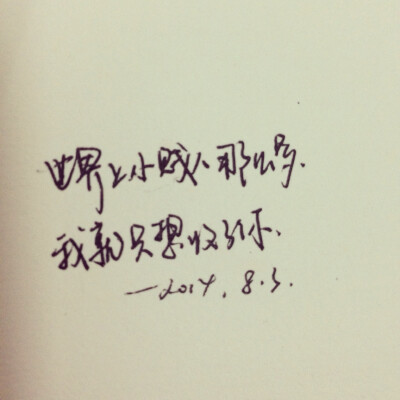 世界上小贱人那么多.
我就只想收了你.
—2014.8.3.